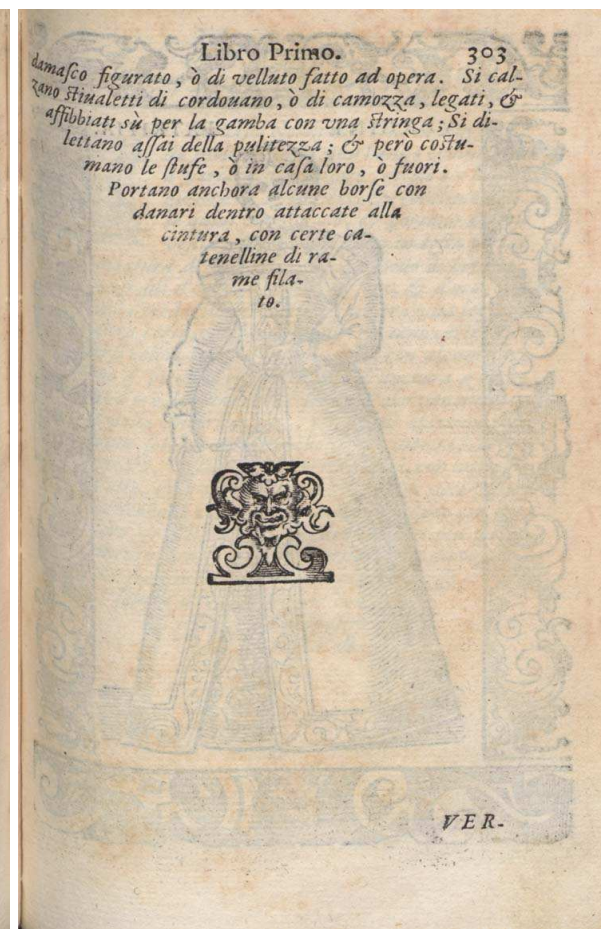 Libro Primo. 303
damaſco figurato, ò di velluto fatto ad opera. Si cal-
zano ſtiualetti di cordouano, ò di camozza, legati, &
affibbiati sù per la gamba con vna ſtringa; Si di-
lettano aſſai della pulitezza; & però coſtu-
mano le ſtufe, ò in caſa loro, ò fuori.
Portano anchora alcune borſe con
danari dentro attaccate alla
cintura, con certe ca-
tenelline di ra-
me fila-
to.
VER-